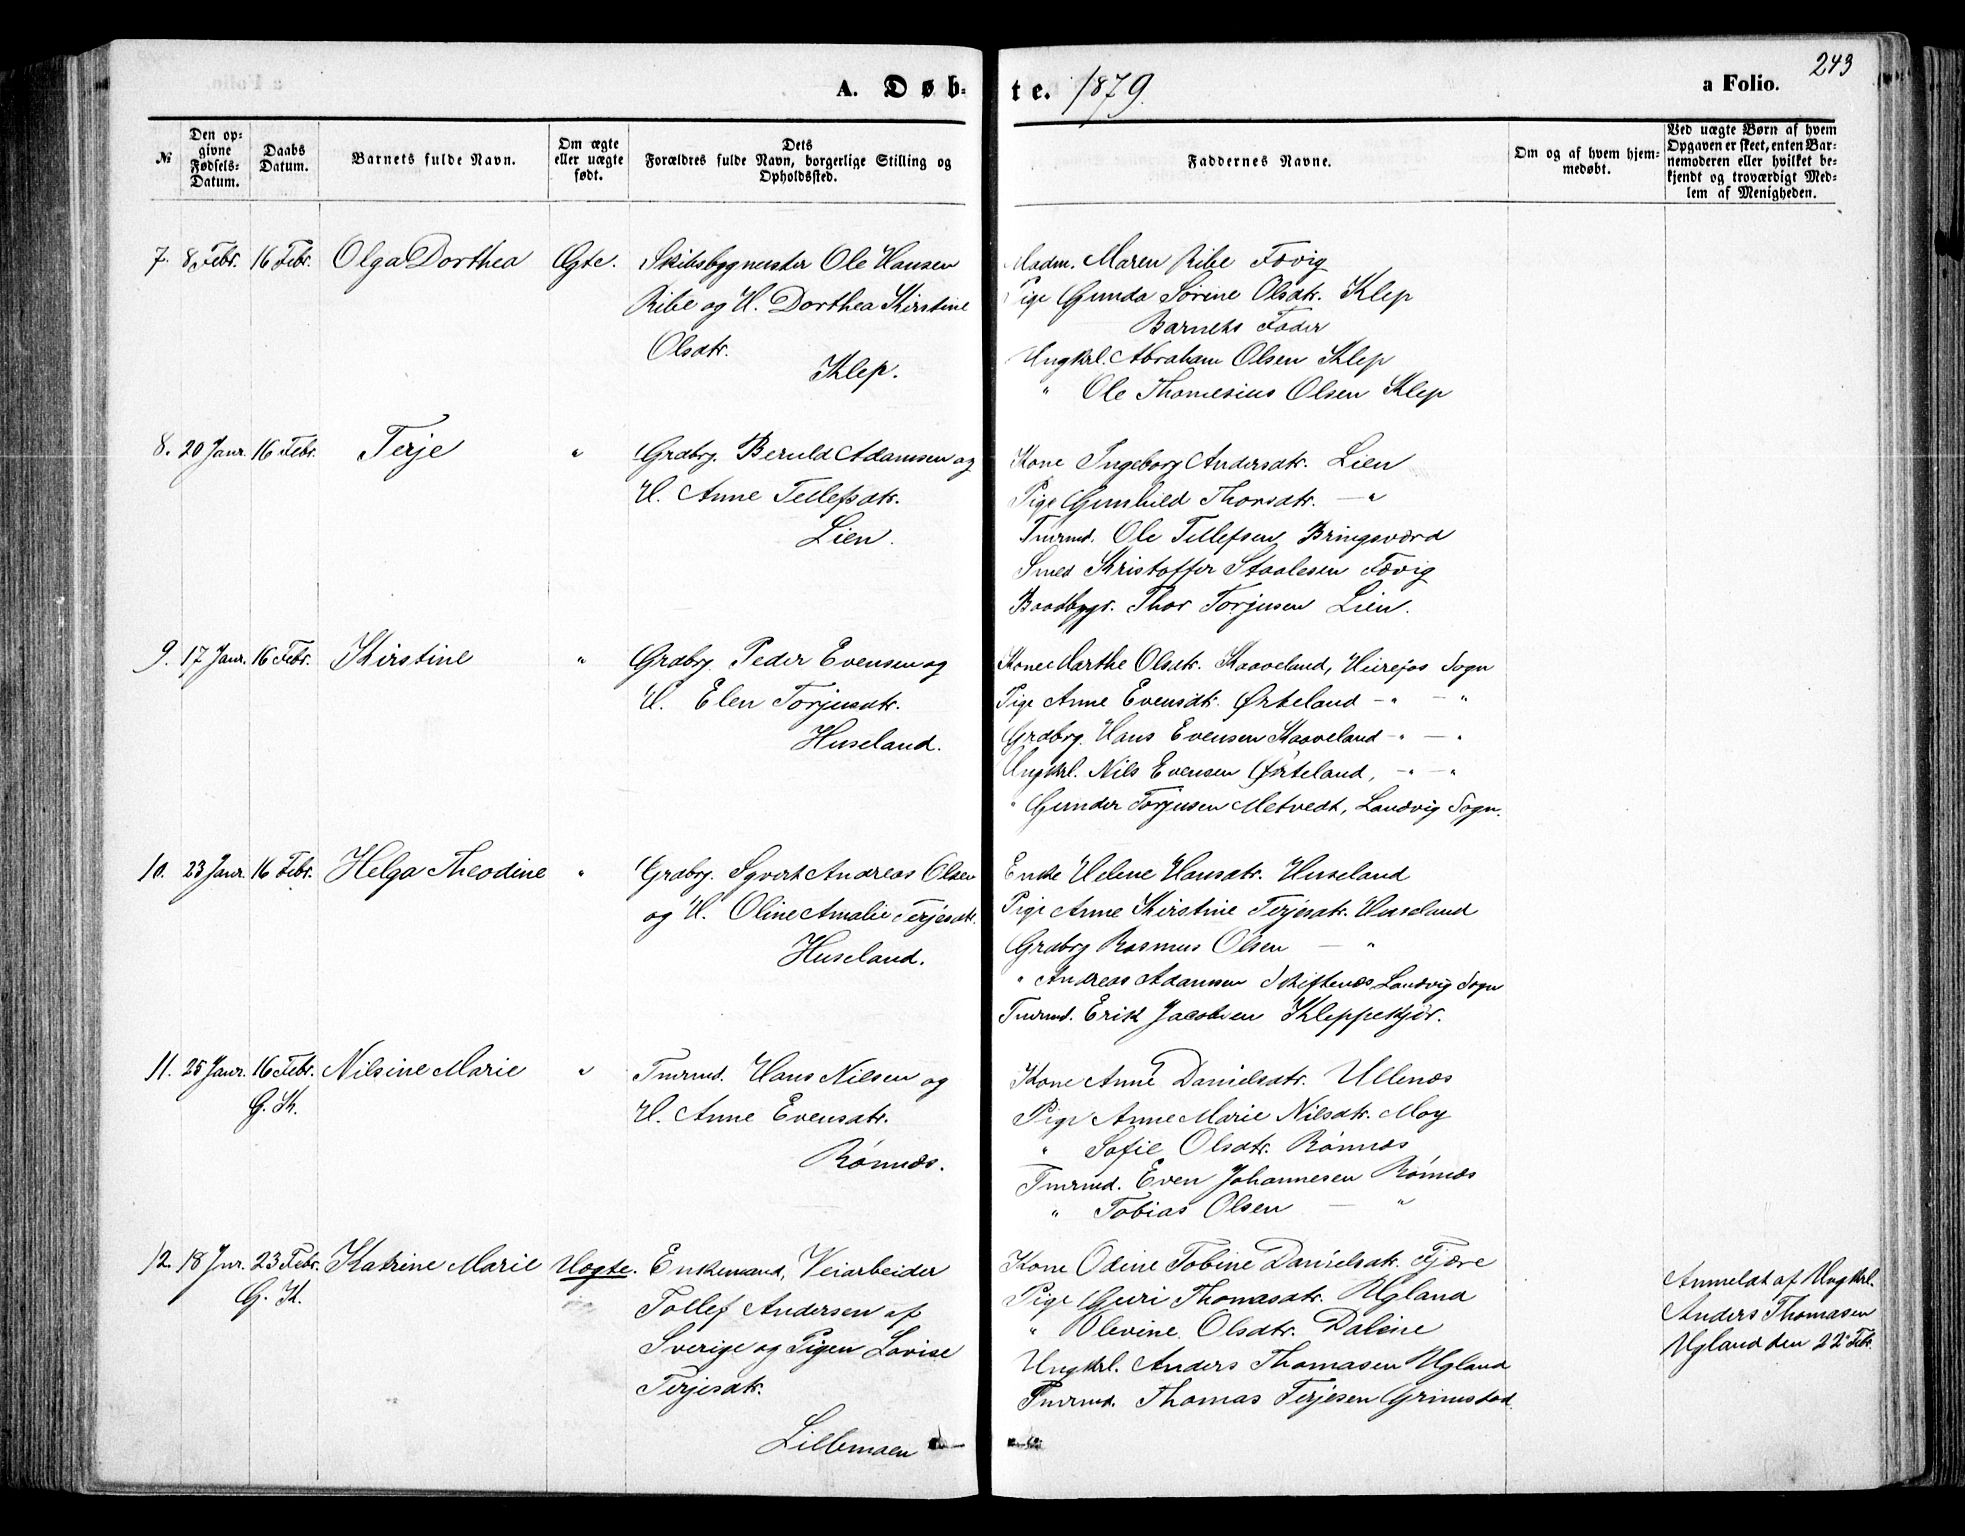 243
A. Døb-
te. 1879.
a Folio.
№
Den op-
givne
Fødsels-
Datum.
Daabs
Datum.
Barnets fulde Navn.
Om ægte
eller uægte
født.
Dets
Forældres fulde Navn, borgerlige Stilling og
Opholdssted.
Faddernes Navne.
Om og af hvem hjem-
medøbt.
Ved uægte Børn af hvem
Opgaven er skeet, enten Bar-
nemoderen eller hvilket be-
kjendt og troværdigt Med-
lem af Menigheden.
7. 8 Febr. 16 Febr. Olga Dorthea Ægte. Skibsbygmester Ole Hansen
Ribe og H. Dorthea Kirstine
Olsdtr.
Klep.
Madm. Maren Ribe Fævig
Pige Gunda Sørine Olsdtr. Klep
Barnets Fader
Ungkrl. Abraham Olsen Klep
" Ole Thomesius Olsen Klep
8. 20 Janr. 16 Febr. Terje " Grdbrg. Beruld Adamsen og
H. Anne Tellefsdtr.
Lien.
Kone Ingeborg Andersdtr. Lien
Pige Gunhild Thorsdtr. — "
Tmrmd. Ole Tellefsen Bringsværd
Smed Kristoffer Staalesen Fævig
Baadbygr. Thor Torjusen Lien.
9. 17 Janr. 16 Febr. Kirstine " Grdbrg. Peder Evensen og
H. Elen Torjusdtr.
Huseland.
Kone Marthe Olsdtr. Kaaveland, Hirefos Sogn
Pige Anne Evensdtr. Ørteland — " — "
Grdbrg. Hans Evensen Kaaveland — " — "
Ungkrl. Nils Evensen Ørteland, — " — "
" Gunder Torjusen Metvedt, Landvig Sogn.
10. 23 Janr. 16 Febr. Helga Theodine " Grdbrg. Syvert Andreas Olsen
og H. Oline Amalie Terjesdtr.
Huseland.
Enke Helene Hansdtr. Huseland
Pige Anne Kirstine Terjesdtr. Huseland
Grdbrg Rasmus Olsen — "
" Andreas Adamsen Skiftenæs Landvig Sogn
Tmrmd. Erik Jacobsen Kleppekjør.
11. 25 Janr. 16 Febr. Nilsine Marie " Tmrmd. Hans Nilsen og
G. K.
H. Anne Evensdtr.
Rønnæs.
Kone Anne Danielsdtr. Ullenæs
Pige Anne Marie Nilsdtr. Moy
" Sofie Olsdtr. Rønnæs
Tmrmd. Even Johannesen Rønnæs
" Tobias Olsen — "
12. 18 Jnr. 23 Febr. Katrine Marie Uægte. Enkemand, Veiarbeider
G. K.
Tollef Andersen af
Sverige og Pigen Lovise
Terjesdtr.
Lillemoen
Kone Odine Tobine Danielsdtr. Fjære
Pige Guri Thomasdtr. Ugland
" Olevine Olsdtr. Dalene
Ungkrl. Anders Thomasen Ugland
Tmrmd. Thomas Terjesen Grimstad.
Anmeldt af Ungkrl.
Anders Thomasen
Ugland den 22 Febr.